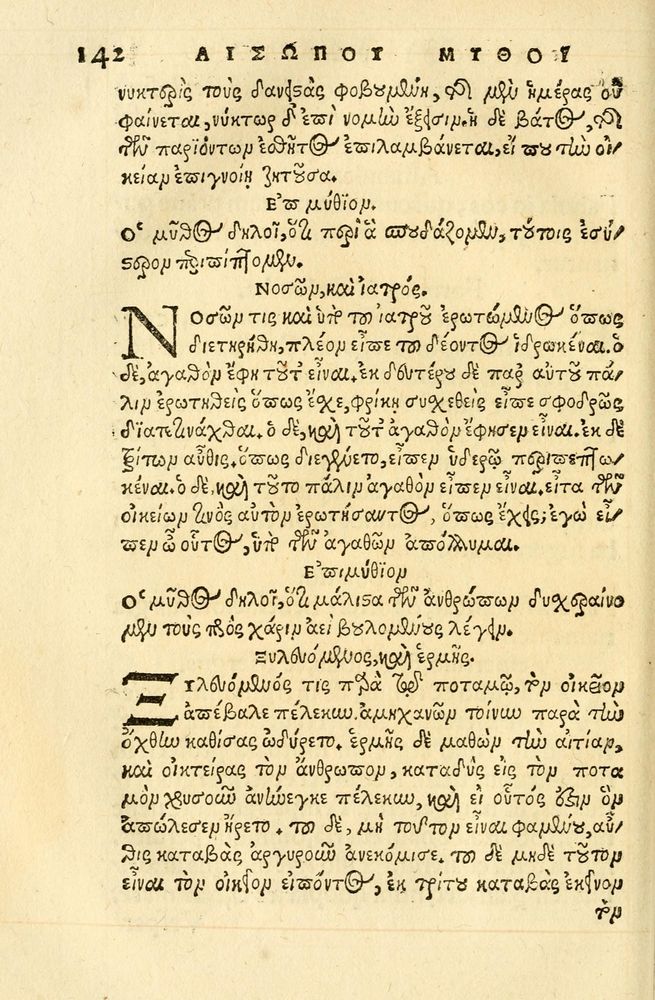 142 ΑΙΣΩΠΟΥ ΜΥΘΟΙ
νυκτερὶς τοὺς δανειστὰς φοβουμένη, τῆς μὲν ἡμέρας οὐ
φαίνεται, νύκτωρ δ' ἐπὶ νομὴν ἔξεισιν. ἡ δὲ βάτος, τῆς
τῶν παριόντων ἐσθῆτος ἐπιλαμβάνεται, εἴ που τὴν οἰ-
κείαν ἐπιγνοίη ζητοῦσα.
Επιμύθιον.
Ὁ μῦθος δηλοῖ, ὅτι περὶ ἃ σπουδάζομεν, τούτοις ἐς ὕ-
στερον περιπίπτομεν.
Νοσῶν, καὶ ἰατρός.
Νοσῶν τις καὶ ὑπὸ τοῦ ἰατροῦ ἐρωτώμενος ὅπως
διετηρήθη, πλέον εἶπε τοῦ δέοντος ἱδρωκέναι. ὁ
δὲ, ἀγαθὸν ἔφη τοῦτ' εἶναι. ἐκ δευτέρου δὲ παρ' αὐτοῦ πά-
λιν ἐρωτηθεὶς ὅπως ἔχε, φρίκῃ συσχεθεὶς εἶπε σφοδρῶς
διατετινάχθαι. ὁ δὲ, καὶ τοῦτ' ἀγαθὸν ἔφησεν εἶναι. ἐκ δὲ
τρίτων αὖθις. ὅπως διεγένετο, εἶπεν ὑδέρῳ περιπεπτω-
κέναι. ὁ δὲ, καὶ τοῦτο πάλιν ἀγαθὸν εἶπεν εἶναι. εἶτα τῶν
οἰκείων τινὸς αὐτὸν ἐρωτήσαντος, ὅπως ἔχεις; ἐγὼ εἶ-
πεν ὦ οὗτος, ὑπὸ τῶν ἀγαθῶν ἀπόλλυμαι.
Επιμύθιον
Ὁ μῦθος δηλοῖ, ὅτι μάλιστα τῶν ἀνθρώπων δυσχεραίνο
μεν τοὺς πρὸς χάριν ἀεὶ βουλομένους λέγειν.
Ξυλευόμενος, καὶ ἑρμῆς.
Ξυλευόμενός τις παρὰ τινὶ ποταμῷ, τὸν οἰκεῖον
ἀπέβαλε πέλεκυν. ἀμηχανῶν τοίνυν παρὰ τὴν
ὄχθην καθίσας ὠδύρετο. ἑρμῆς δὲ μαθὼν τὴν αἰτίαν,
καὶ οἰκτείρας τὸν ἄνθρωπον, καταδὺς εἰς τὸν ποτα
μὸν χρυσοῦν ἀνήνεγκε πέλεκυν, καὶ εἰ οὗτός ἐστιν ὃν
ἀπώλεσεν ἤρετο. τοῦ δὲ, μὴ τοῦτον εἶναι φαμένου, αὖ-
θις καταβὰς ἀργυροῦν ἀνεκόμισε. τοῦ δὲ μηδὲ τοῦτον
εἶναι τὸν οἰκεῖον εἰπόντος, ἐκ τρίτου καταβὰς ἐκεῖνον
τὸν